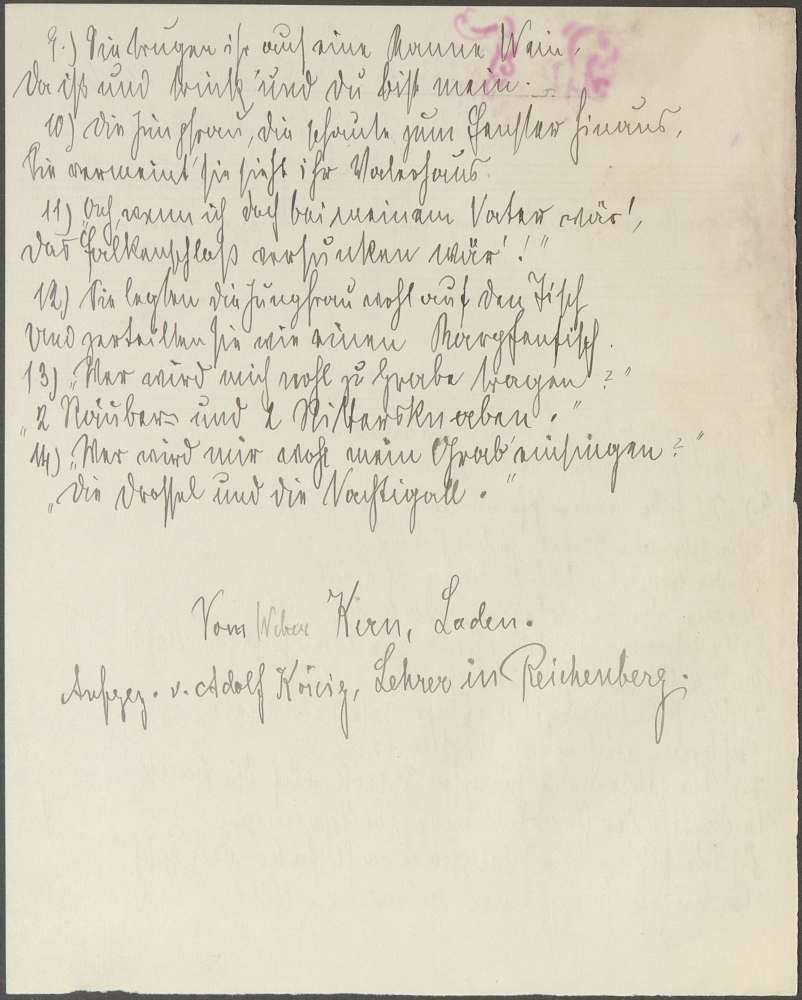 9.) Sie trugen ihr auf eine Kanne Wein,
Da iß und trink' und du bist mein.
10) Die Jungfrau, die schaute zum Fenster hinaus,
Sie vermeint' sie sieht ihr Vaterhaus.
11) „Ach, wenn ich doch bei meinem Vater wär',
Das Falkenschloß versunken wär'!"
12.) Sie legten die Jungfrau wohl auf den Tisch
Und zerteilten sie wie einen Karpfenfisch.
13) „Wer wird mich wohl zu Grabe tragen?"
„2 Räuber und 2 Rittersknaben."
14) „Wer wird mir wohl mein Grab einsingen?"
„Die Drossel und die Nachtigall."
Vom Weber Kern, Laden.
Aufgez. v. Adolf König, Lehrer in Reichenberg.